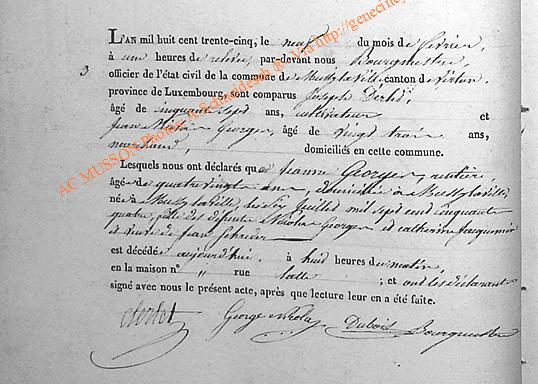 L'AN mil huit cent trente-cinq, le neuf du mois de février,
à une heures de relevée, par-devant nous Bourgmestre
3 officier de l'état civil de la commune de Mussy la ville canton de Virton,
province de Luxembourg, sont comparus Joseph
âgé de cinquante sept ans, cultivateur et
Jean George, âgé de vingt trois ans,
domiciliés en cette commune.
Lesquels nous ont déclarés que Jeanne George, rentière,
âgée de quatre vingts ans, domiciliée à Mussy la ville,
né à Mussy la ville le six Juillet mil sept cent cinquante
quatre, fille des défunts Nicolas George et catherine
et veuve de Jean
est décédé aujourd'hui, à huit heures du matin,
en la maison n° " rue ; et ont les déclarant
signé avec nous le présent acte, après que lecture leur en a été faite.
George Nicolas Dubois Bourgmestre
AC MUSSON Photos: R Schmidesch & Via http://geneciney